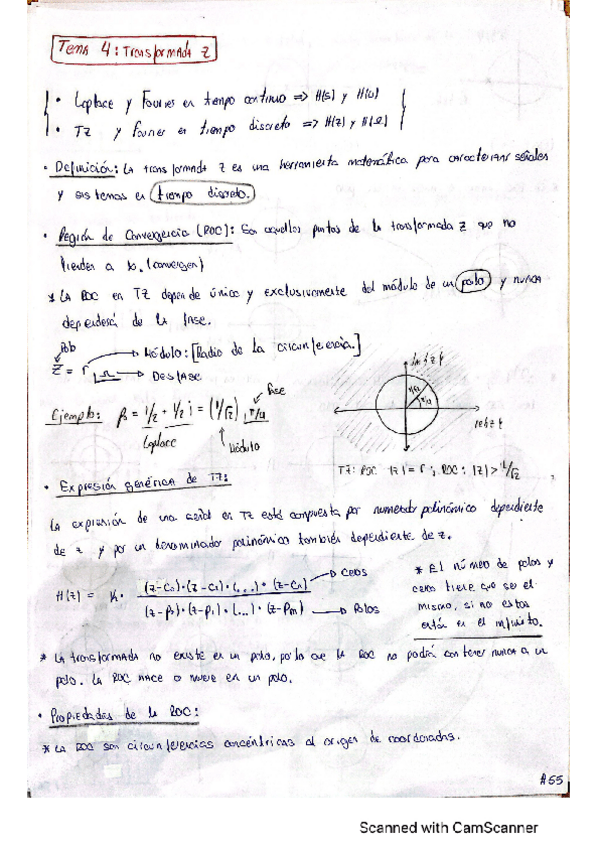 Tema 4: Transformada Z
· Laplace y Fourier en tiempo continuo => H(s) y H(ω)
· TZ y Fourier en tiempo discreto => H(z) y H(Ω)
· Definición: La transformada Z es una herramienta matemática para caracterizar señales
y sistemas en tiempo discreto.
· Región de Convergencia (ROC): Son aquellos puntos de la transformada Z que no
tienden a ∞. (convergen)
* La ROC en TZ depende único y exclusivamente del módulo de un polo y nunca
dependerá de la fase.
Polo
Módulo: [Radio de la circunferencia.]
Z = r
Desfase
Fase
Ejemplo: p₀ = 1/2 + 1/2 i = (1/√2) π/4
Laplace
Módulo
Im{z}
1/√2
π/4
Re{z}
TZ: ROC |z| = r ; ROC: |z| > 1/√2
· Expresión genérica de TZ:
La expresión de una señal en TZ está compuesta por numerador polinómico dependiente
de z y por un denominador polinómico también dependiente de z.
H(z) = K · (z-c₀)·(z-c₁)·(...)·(z-cₙ) → Ceros
(z-p₀)·(z-p₁)·(...)·(z-pₘ) → Polos
* El número de polos y
ceros tiene que ser el
mismo, si no estos
están en el infinito.
* La transformada no existe en un polo, por lo que la ROC no podrá contener nunca a un
polo. La ROC nace o muere en un polo.
· Propiedades de la ROC:
* La ROC son circunferencias concéntricas al origen de coordenadas.
A55
Scanned with CamScanner